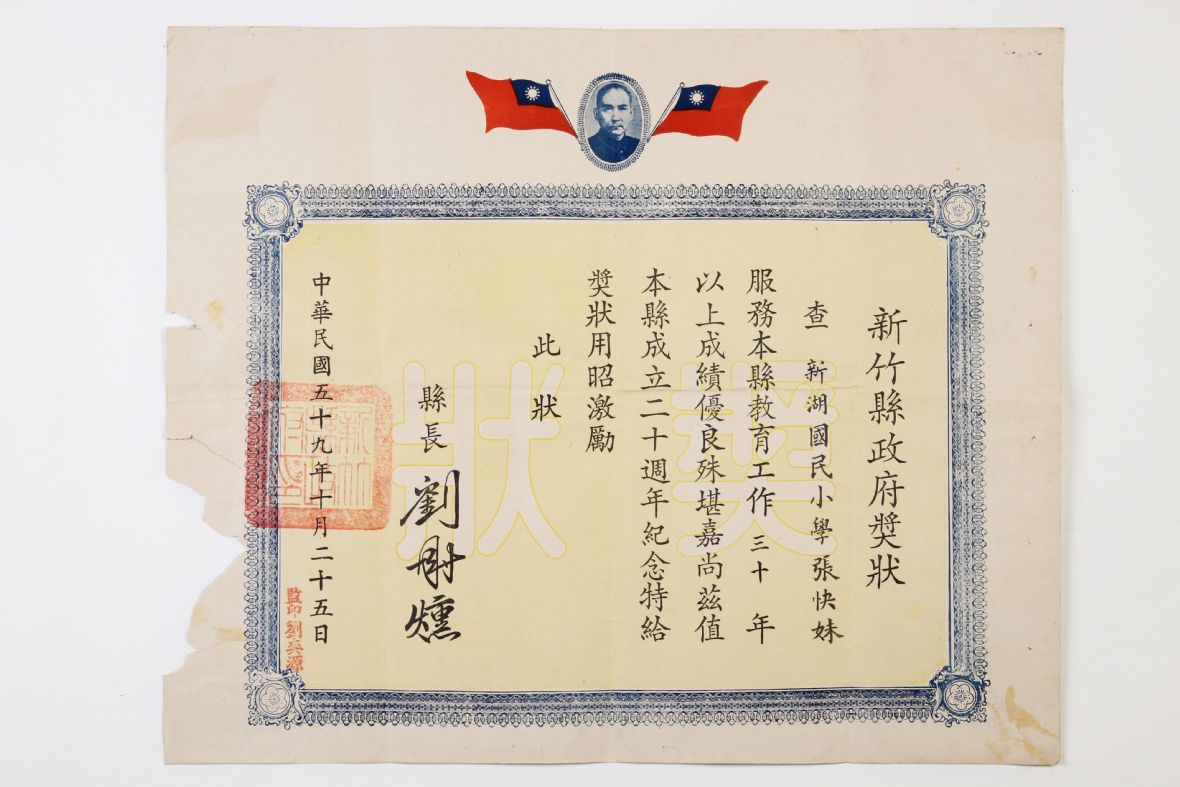 新竹縣政府獎狀
查 新湖國民小學張快妹
服務本縣教育工作 三十 年
以上成績優良殊堪嘉尚茲值
本縣成立二十週年紀念特給
獎狀用昭激勵
此狀
縣長 劉
中華民國五十九年十月二十五日
監印劉兵源
獎狀